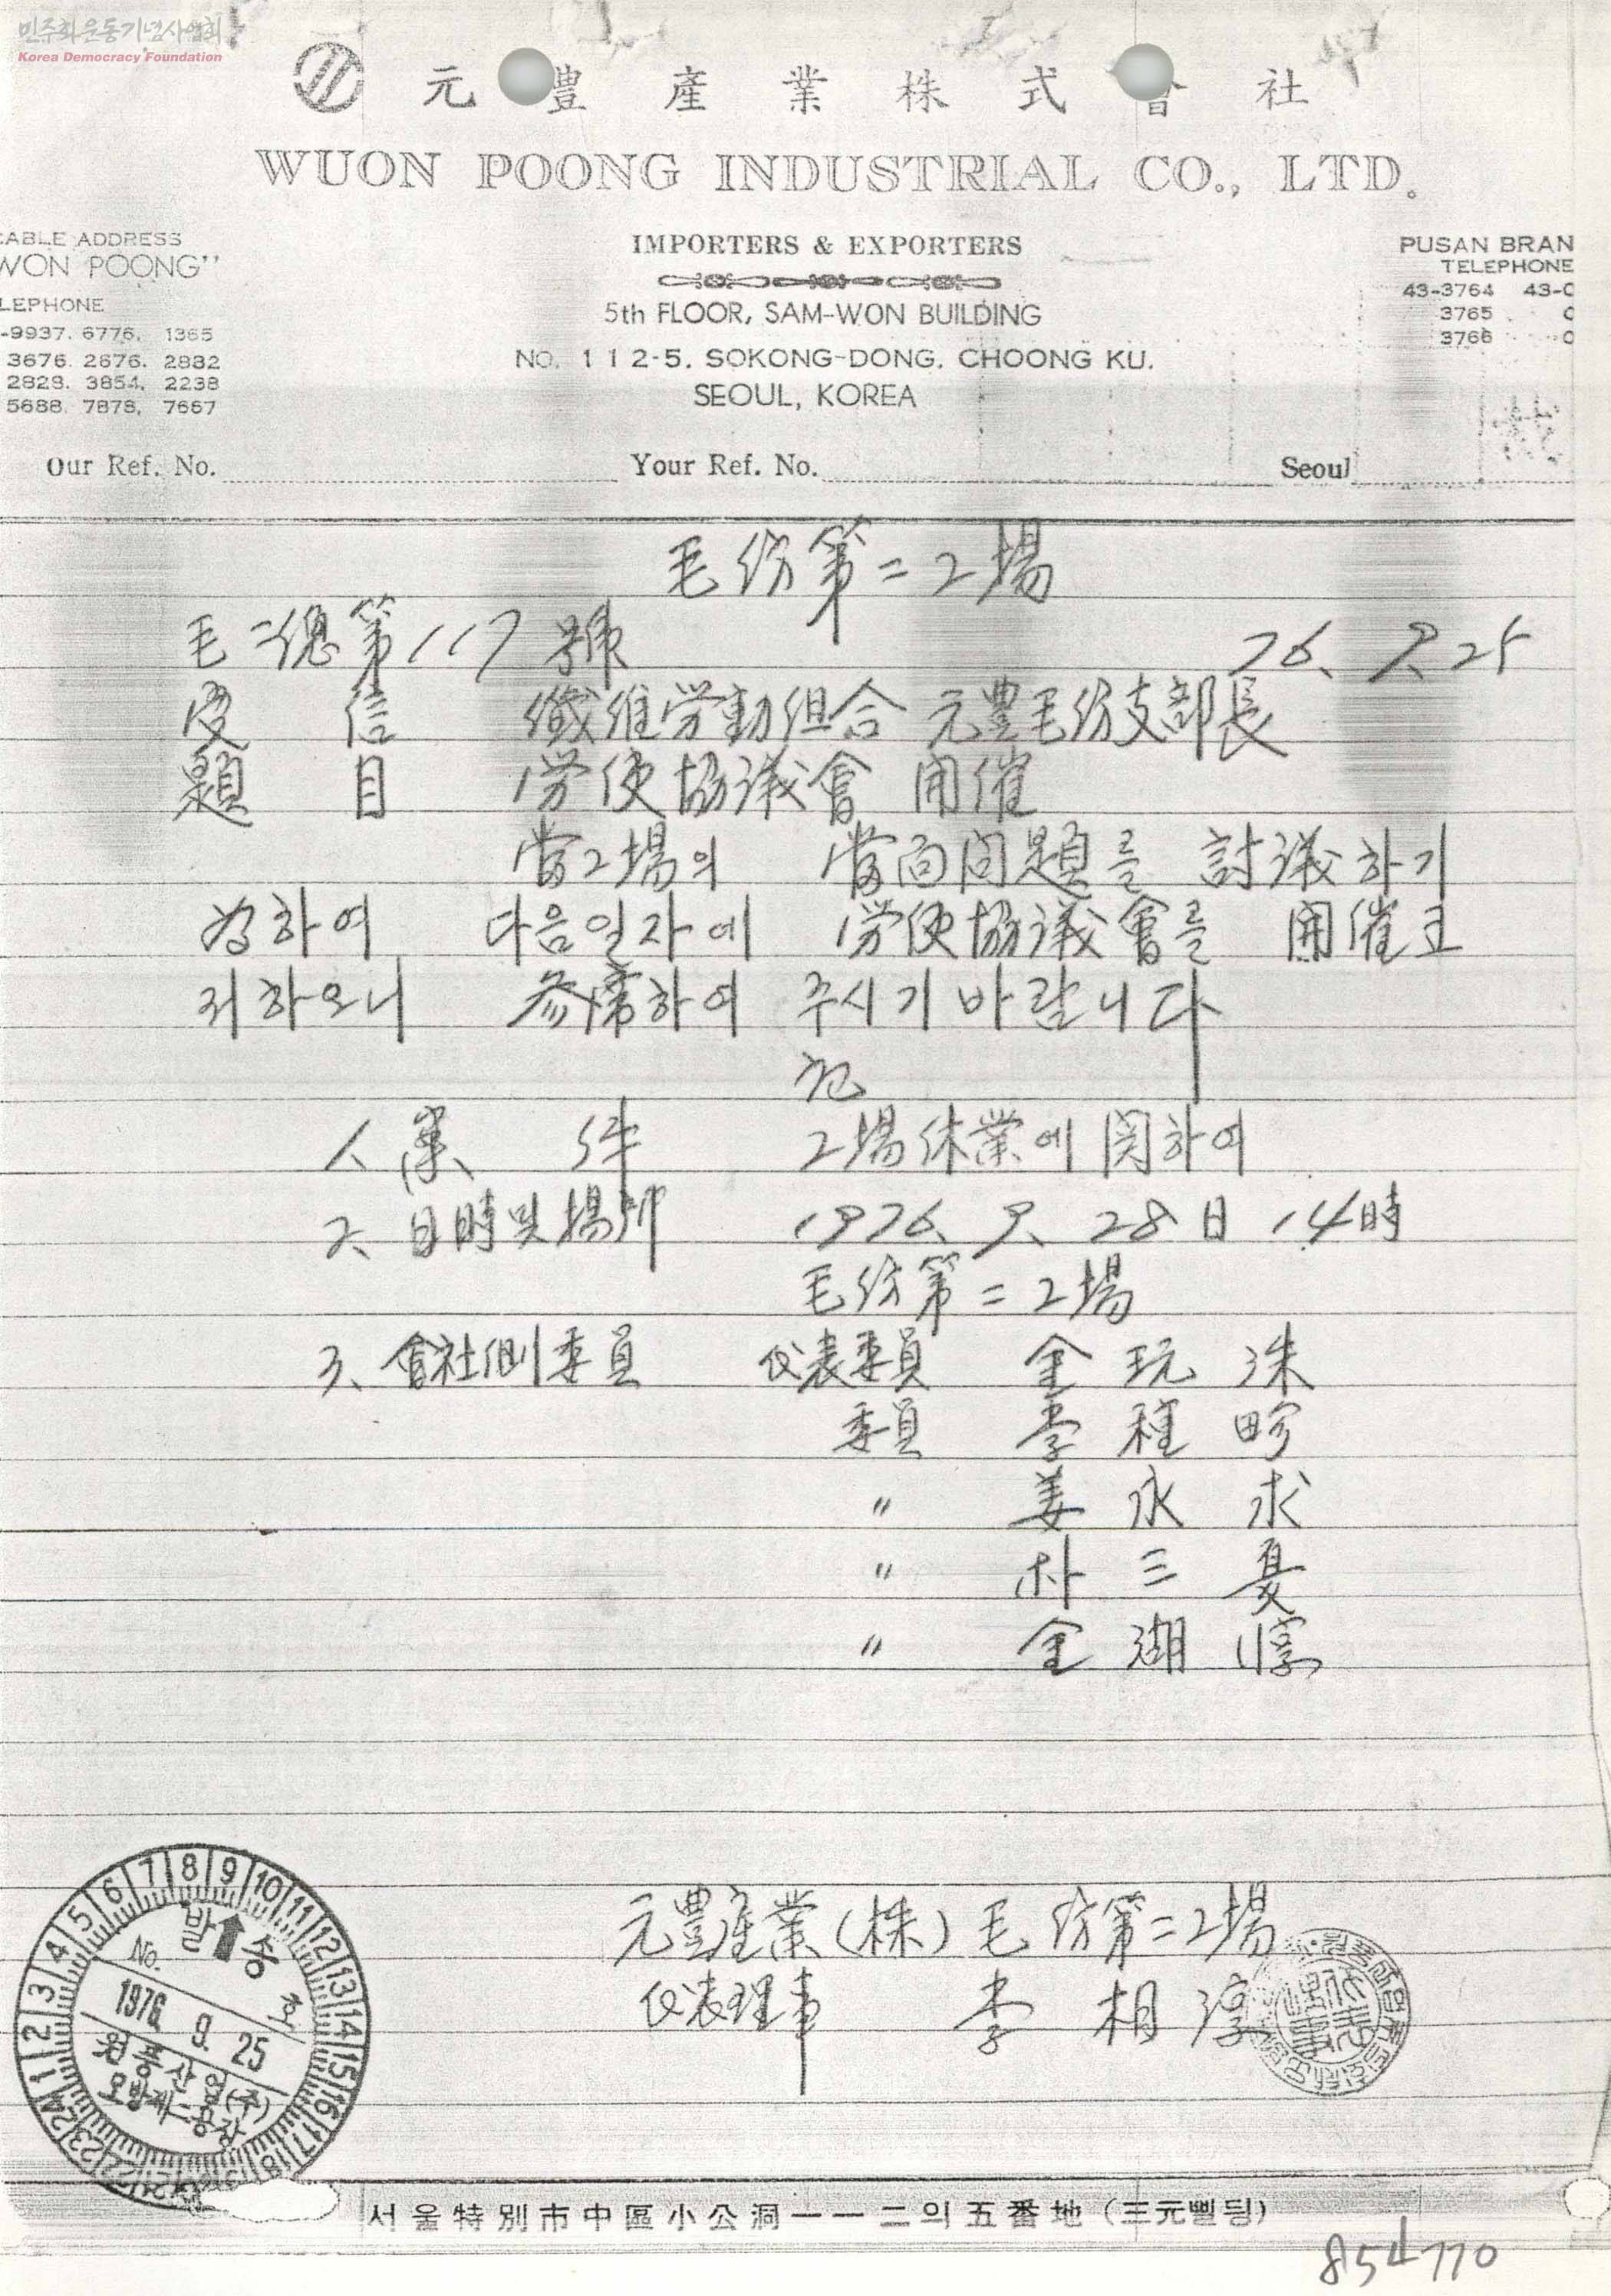 민주화운동기념사업회
Korea Democracy Foundation
元豊産業株式會社
WUON POONG INDUSTRIAL CO., LTD.
CABLE ADDRESS
WON POONG"
LEPHONE
-9937. 6776. 1365
3676. 2676. 2882
2828. 3854. 2238
5688. 7878. 7667
IMPORTERS & EXPORTERS
5th FLOOR, SAM-WON BUILDING
NO. 112-5. SOKONG-DONG. CHOONG KU.
SEOUL, KOREA
PUSAN BRAN
TELEPHONE
43-3764 43-0
3765 0
3766 0
Our Ref. No. Your Ref. No. Seoul
毛紡第二工場
毛二總第117號 76. 9. 25
受信 纖維労動組合 元豊毛紡支部長
題目 労使協議會 開催
當工場의 當面問題를 討議하기
爲하여 다음일자에 労使協議會를 開催코
저하오니 參席하여 주시기 바랍니다
記
1. 案件 工場休業에 関하여
2. 日時및場所 1976. 9. 28日 14時
毛紡第二工場
3. 會社側委員 代表委員 金玩洙
委員 李種畛
〃 姜永求
〃 朴三夏
〃 金湖惇
元豊産業(株)毛紡第二工場
代表理事 李相淳
1 2 3 4 5 6 7 8 9 10 11 12 13 14 15 16 17 18 22 23 24
발송
No. 호
1976. 9. 25
원풍산업(주)
모방제二공장
서울特別市中區小公洞一一二의五番地(三元삘딩)
854770